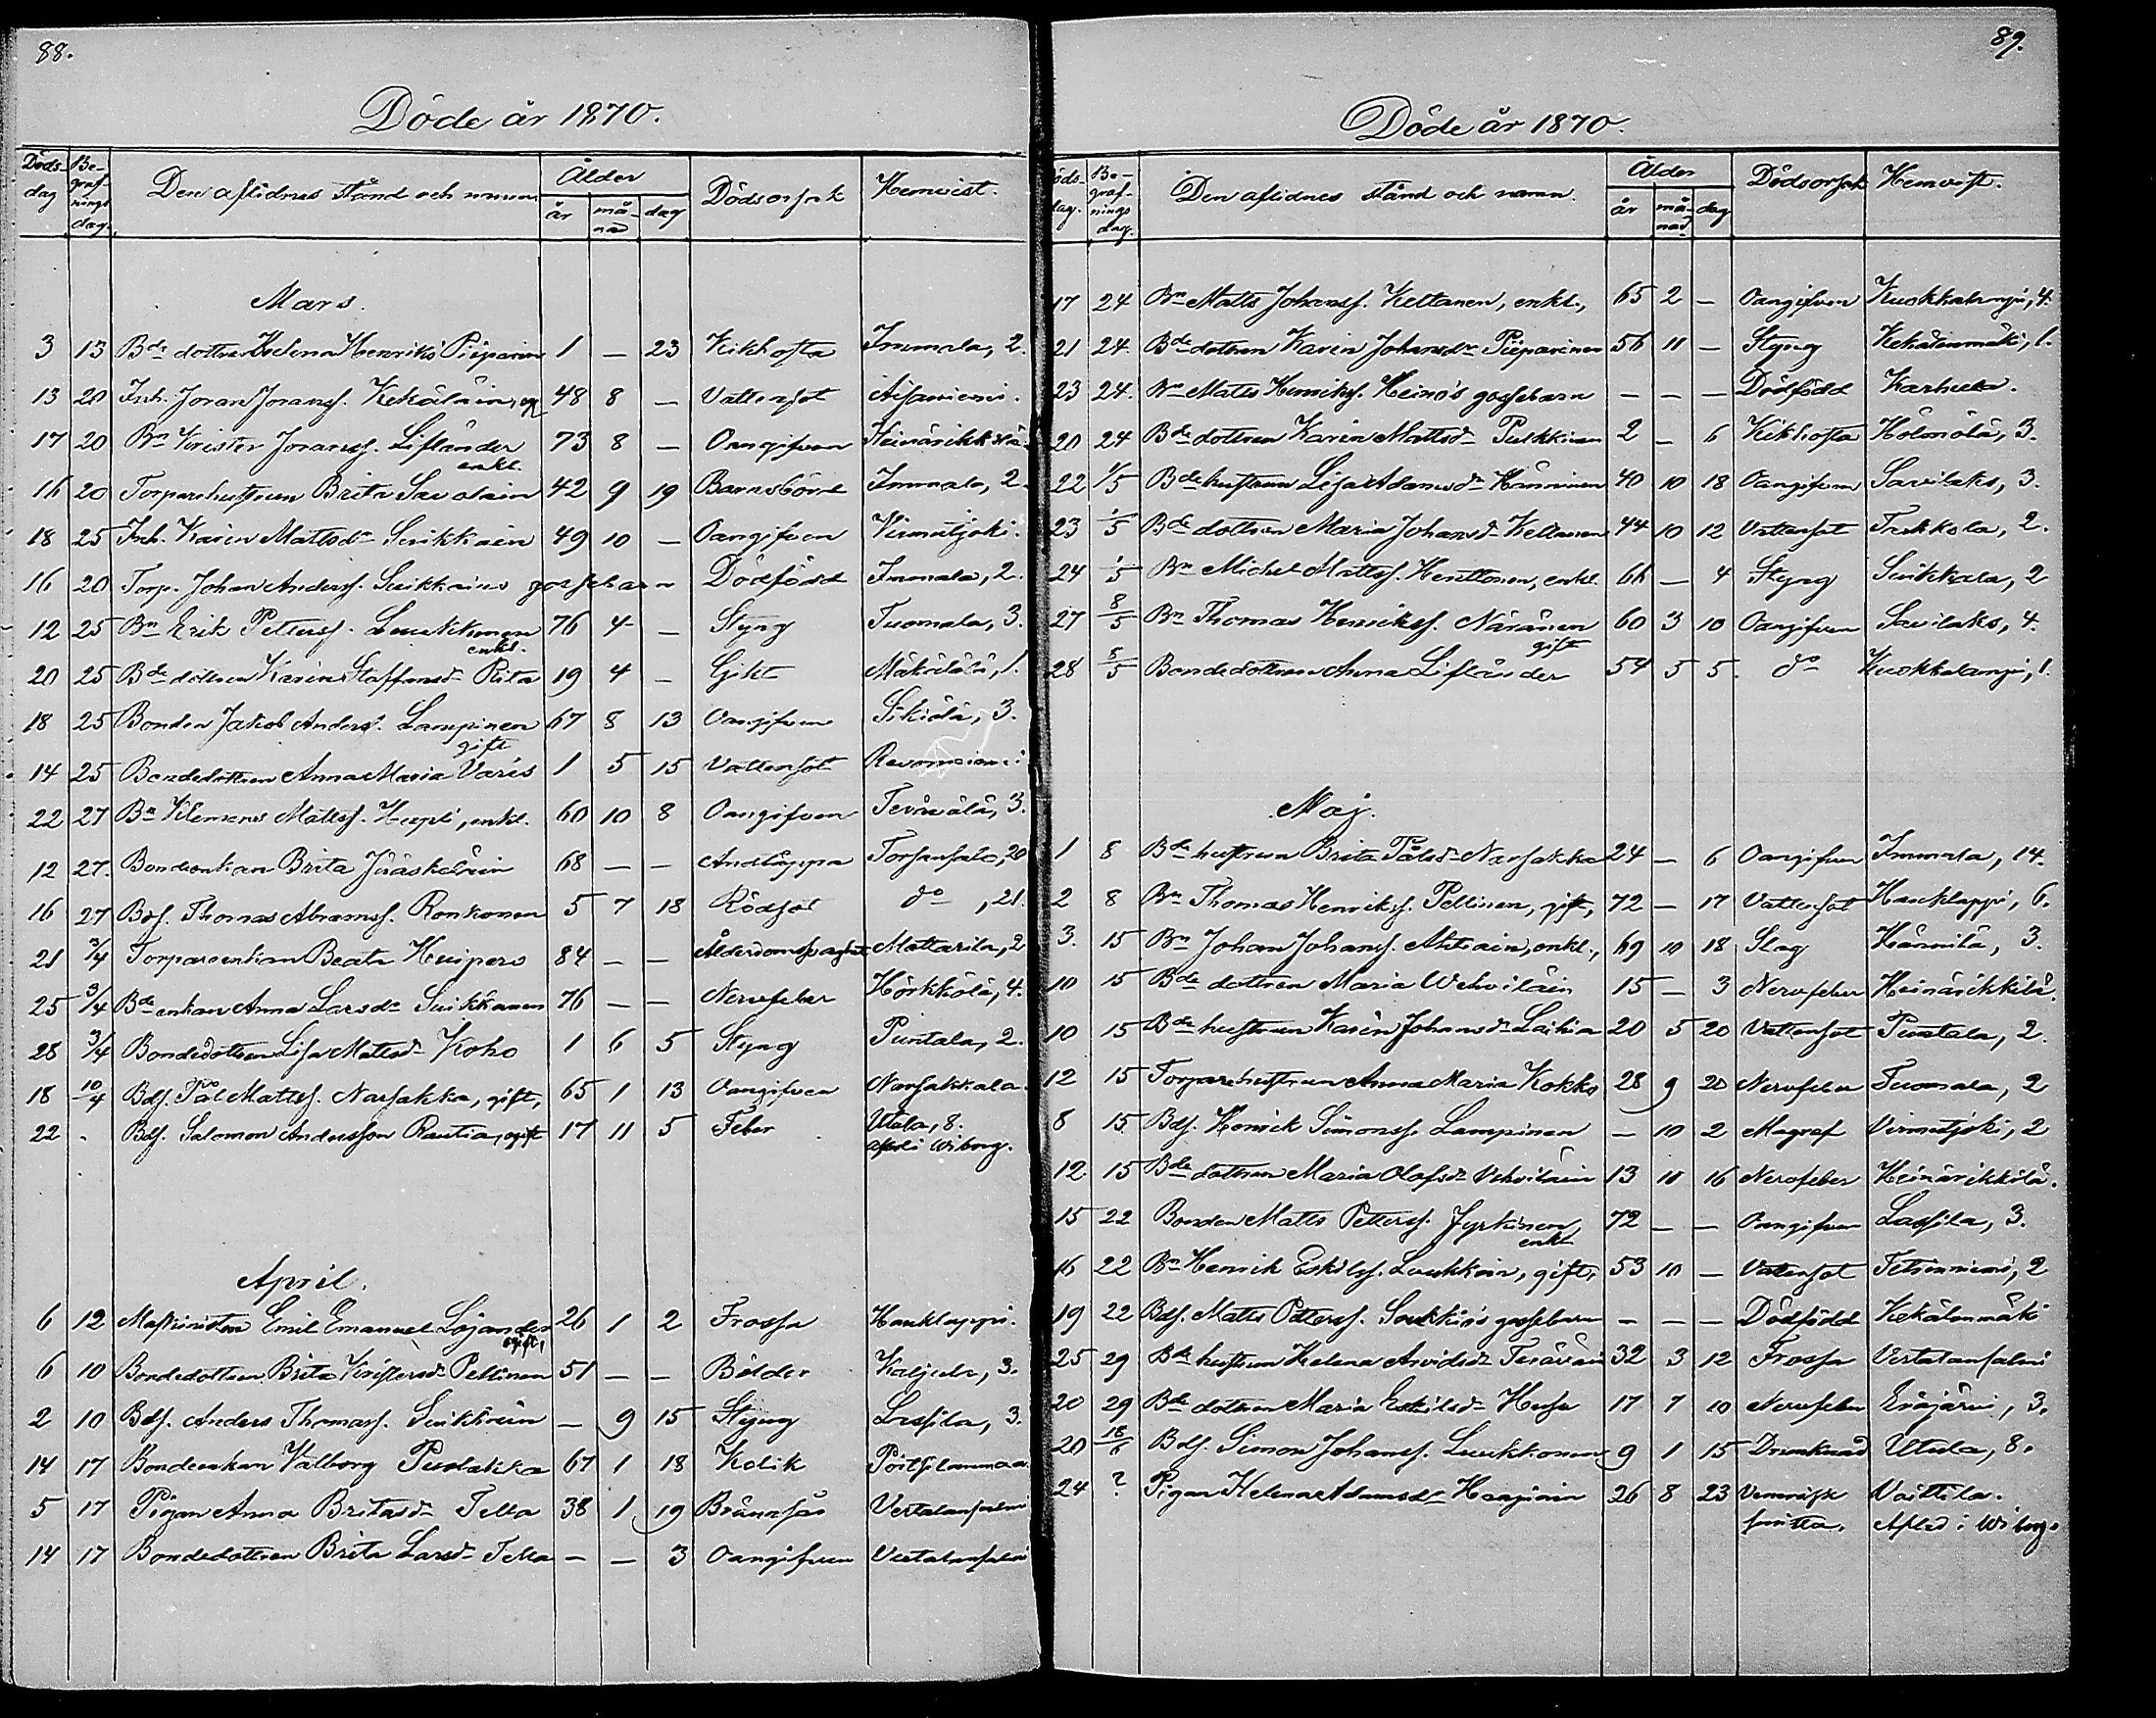 88.
Döde år 1870.
Döds-dag Be-grafnings dag. Den aflidnes stånd och namn Ålder år må-nad dag Dödsorsak Hemvist.
Mars.
3 13 Bde dottren Helena Henriks Piiparinen 1 — 23 Kikhosta Immala, 2.
13 20 Inh. Joran Joranss. Kekäläin, 48 8 — Vattusot
17 20 Bn Krister Joranss. Lifländer enkl. 73 8 — Oangifven Heinärikkilä
16 20 Torparehustrun Brita Savolain 42 9 19 Barnsbörd Immala, 2.
18 25 Inh. Karin Mattsdr Suikkain 49 10 — Oangifven Virmutjoki.
16 20 Torp. Johan Anderss. Suikkains gossebarn Dödfödd Immala, 2.
12 25 Bn Erik Petterss. Luukkonen enkl. 76 4 — Styng Tuomala, 3.
20 25 Bde dottren Karin Staffansdr Rita 19 4 — Gikt Mäkälälä, 1.
18 25 Bonden Jakob Anderss. Lampinen gift 67 8 13 Oangifven Sikiölä, 3.
14 25 Bondedottren Anna Maria Varis 1 5 15 Vattensot
22 27 Bn Klemens Mattss. Huppi, enkl. 60 10 8 Oangifven 3.
12 27. Bondeenkan Brita Jääskeläin 68 — — Andtäppa Torsansalo, 20
16 27 Bds. Thomas Abramss. Ronkonen 5 7 18 Rödsot do, 21.
21 3/4 Torpareenkan Beata Kuipero 84 — — Ålderdomssvaghet Mattarila, 2
25 3/4 Bde enkan Anna Larsdr Suikkanen 76 — — Nervfeber Hörkkölä, 4.
28 3/4 Bondedottren Lisa Mattsdr Koho 1 6 5 Styng Puntala, 2.
18 10/4 Bds. Pål Mattss. Narsakka, gift, 65 1 13 Oangifven Narsakkala.
22 . Bds. Salomon Andersson Rautia, ogift 17 11 5 Feber Utula, 8.
afled i Wiborg.
April.
6 12 Maskinisten Emil Emanuel Lojander ogift, 26 1 2 Frossa Hauklappi.
6 10 Bondedottren Brita Kristersdr Pellinen 51 — — Bölder 3.
2 10 Bds. Anders Thomass. Suikkain — 9 15 Styng Lassila, 3.
14 17 Bondeenkan Valborg Pusdakka 67 1 18 Kolik
5 17 Pigan Anna Britasdr Tella 38 1 19 Brännsår Vertalansalmi
14 17 Bondedottren Brita Larsdr Tella — — 3 Oangifven Vertalansalmi
89.
Döde år 1870.
Döds-dag. Be-grafnings dag. Den aflidnes stånd och namn. Ålder år må-nad dag Dödsorsak Hemvist.
17 24 Bn Matts Johanss. Keltanen, enkl., 65 2 — Oangifven Kuokkalampi, 4.
21 24. Bde dottren Karin Johansdr Piiparinen 56 11 — Styng Kekälenmäki, 1.
23 24. Bn Matts Henrikss. Heino's gossebarn — — — Dödfödd Karhula.
20 24 Bde dottren Karin Mattsdr Pulkkinen 2 — 6 Kikhosta Hölmölä, 3.
22 1/5 Bde hustrun Lisa Adamsdr Hänninen 40 10 18 Oangifven Savilaks, 3.
23 1/5 Bde dottren Maria Johansdr Keltanen 44 10 12 Vattensot 2.
24 1/5 Bn Michel Mattss. Henttonen, enkl 66 — 4 Styng Suikkala, 2
27 8/5 Bn Thomas Henrikss. Näränen gift 60 3 10 Oangifven Savilaks, 4.
28 8/5 Bondedottren Anna Lifländer 54 5 5. do Kuokkalampi, 1.
Maj.
1 8 Bde hustrun Brita Pålsdr Narsakka 24 — 6 Oangifven Immala, 14.
2 8 Bn Thomas Henrikss. Pellinen, gift, 72 — 17 Vattensot Hauklappi, 6.
3. 15 Bn Johan Johanss. Ahtiain, enkl., 69 10 18 Slag Kärnilä, 3.
10 15 Bde dottren Maria Wehviläin 15 — 3 Nervfeber Heinärikkilä.
10 15 Bde hustrun Karin Johansdr Laikia 20 5 20 Vattensot Puntala, 2.
12 15 Torparehustrun Anna Maria Kokko 28 9 20 Nervfeber Tuomala, 2
8 15. Bds. Henrik Simonss. Lampinen — 10 2 Magref Virmutjoki, 2
12. 15 Bde dottren Maria Olofsdr Vehviläin 13 10 16 Nervfeber Heinärikkilä.
15 22 Bonden Matts Petterss. Jyrkinen, enkl 72 — — Oangifven Lassila, 3.
16 22 Bn Henrik Eskilss. Luukkain, gift, 53 10 — Vattensot 2
19 22 Bds. Matts Petterss. Soukkio's gossebarn — — — Dödfödd Kekälenmäki
25 29 Bde hustrun Helena Arvidsdr Teräväin 32 3 12 Frossa Vertalansalmi
20 29 Bde dottren Maria Eskilsdr Husu 17 7 10 Nervfeber Eräjärvi, 3.
20 18/6 Bds. Simon Johanss. Luukkonen 9 1 15 Drunknad Utula, 8.
24 ? Pigan Helena Adamsdr Haapiain 26 8 23 Venerisk Vaittila.
smitta. Afled i Wiborg.